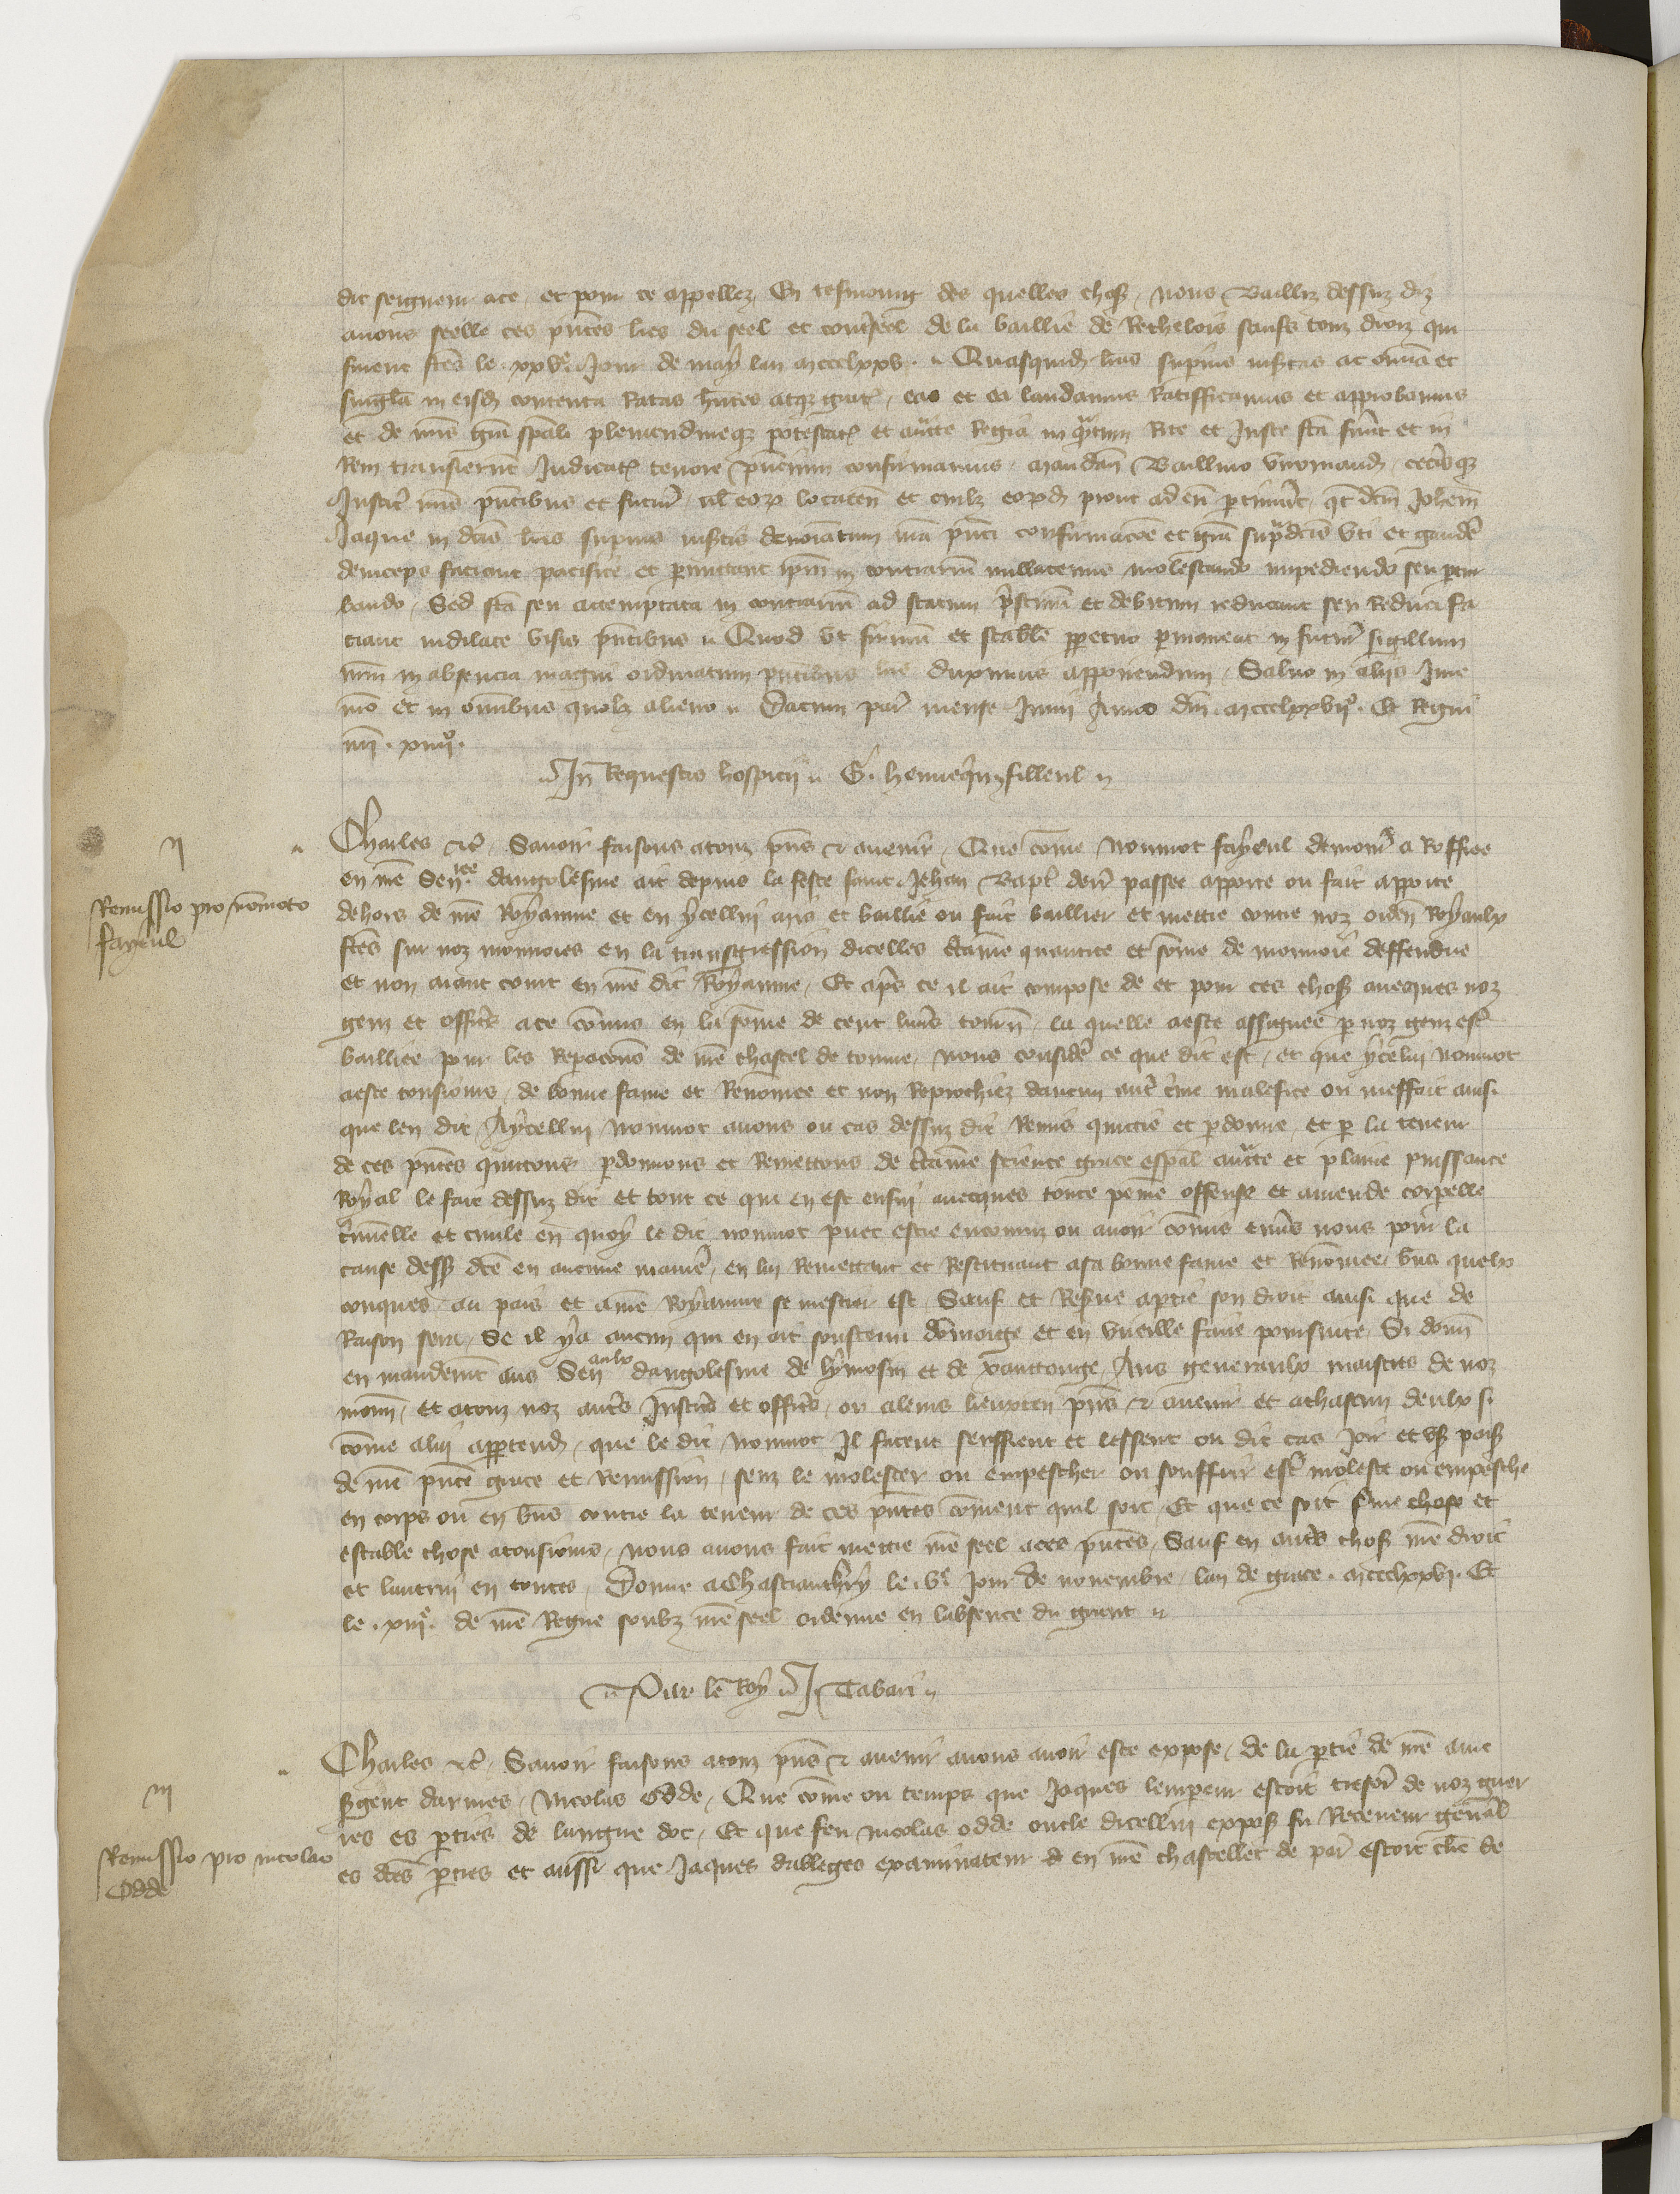 dit seigneur a ce et pour ce appellez, En tesmoing des quelles chos, nous Bailliz dessuz diz
avons seelle ces pntes lres du seel et contreseel de la baillie de Rethelois saufs touz droiz qui
furent ftes le xxve jour de may lan mccclxxv. Quasquid lras suprius insertas ac omnia et
singla in eisd contenta Ratas hntes atq grat, eas et ea laudamus Ratifficamus et approbamus
et de nris gra spali plenitudineq potestat et aucte Regia in qntum Rite et Juste fta funt et in
Rem transierunt Judicat tenore pncium confirmamus. Mandan Baillivo viromand, cetisq
Justic nris pntibus et futur, vl eor locaten et cuilz eord prout ad eu ptinuit, qt dcm Johem
Jaque in dcis lris supius insertis denoiatum nra pnti confirmacoe et gra supdcis uti et gaude
deinceps faciant pacifice et pmittant ipm in contrarium nullatenus molestando impediendo seu ptur
bando, Sed fta seu attemptata in contrarium ad statum pstinu et debitum reducant seu Reduci fa
ciant indilate visis pntibus. Quod ut firmu et stabile ppetuo pmaneat in futur sigillum
nrm in absencia magni ordinatum pntibus lris duximus apponendum, Salvo in aliis Jure
nro et in omnibus quolz alieno. Datum par mense Junii Anno dni mccclxxvii°. Et Regni
nri. xiiii°.
In Requestis hospicii. G. hennequin filleul

II
Remissio pro nomoto
fayeul

Charles etc. Savoir faisons a touz pns et avenir, Que come Nonnot fayeul demour a Roffiec
en nre Sentee dangolesme ait depuis la feste saint Jehan Bapt derr passee apporte ou fait apporte
dehors de nre Royaume et en ycellui mis et baillie ou fait baillier et mettre contre noz orden Royaulx
ftes sur noz monnoies en la transgression dicelles ctaine quantite et some de monnoie deffendue
et non aiant cours en nre dit Royaume, Et aps ce il ait compose de et pour ces chos avecques noz
genz et offics a ce comis en la some de cent livres tourn, la quelle a este assignee p noz genz est
baillice pour les Reparons de nre chastel de tonnie, nous consider ce que dit est, et que ycelui Nonnot
a este tousiours de bonne fame et Renomee et non Reprochiez daucun autr vilain malefice ou meffait ainsi
que len dit, A ycellui Nonnot avons ou cas dessuz dit Remis quictie et pdonne, et p la teneur
de ces pntes quittons pdonnons et Remettons de ctaine science grace espal aucte et plaine puissance
Royal le fait dessuz dit et tout ce qui en est ensui avecques toute peine offense et amende corpelle
criminelle et civile en quoy le dit Nonnot puet estre encouruz ou avoir comis envers nous pour la
cause dess dte en aucune manie, en lui Remettant et Restituant a sa bonne fame et Renomee, bns quelx
conques, au pais et a nre Royaume se mestier est, Sauf et Reserve a ptie son droit ainsi que de
Raison sera, Se il y a aucun qui en ait soustenu domaige et en vueille faire poursuite, Si donn
en mandemt aus Senaulx dangolesme de lymosin et de xanttonge, Aus generaulx maistres de noz
monn, et a touz noz auts Justics et offics, ou a leurs lieuxten pns et avenir et a chascun deulx si
come a lui apptend, que le dit Nonnot Il facent seuffrent et lessent ou dit cas Joir et us pais
de nre pnte grace et Remission, senz le molester ou empescher ou souffrir est moleste ou empesche
en corps ou en bns contre la teneur de ces pntes coment quil soit, Et que ce soit ferme chose et
estable chose a tousiours, nous avons fait mettre nre seel a ces pntes, Sauf en auts chos nre droit
et lautrui en toutes, Donne a Chasteauthiery le ve jour de novembre, lan de grace. mccclxxvi. Et
le .xiiie. de nre Regne soubz nre seel ordenne en labsence du grant

Par le Roy J. Tabari

III
Remissio pro nicolao
Odde

Charles etc. Savoir faisons a touz pns et avenir avons avoir este expose, de la ptie de nre ame
sgent darmes, Nicolas Odde, Que come ou temps que Jaques lempeur estoit tresor de noz guer
res es pties de langue doc, Et que feu Nicolas Odde oncle dicellui expos fu Receveur genal
es dtes pties et aussi que Jaques dableges examinateur d en nre chastellet de par estoit clic de